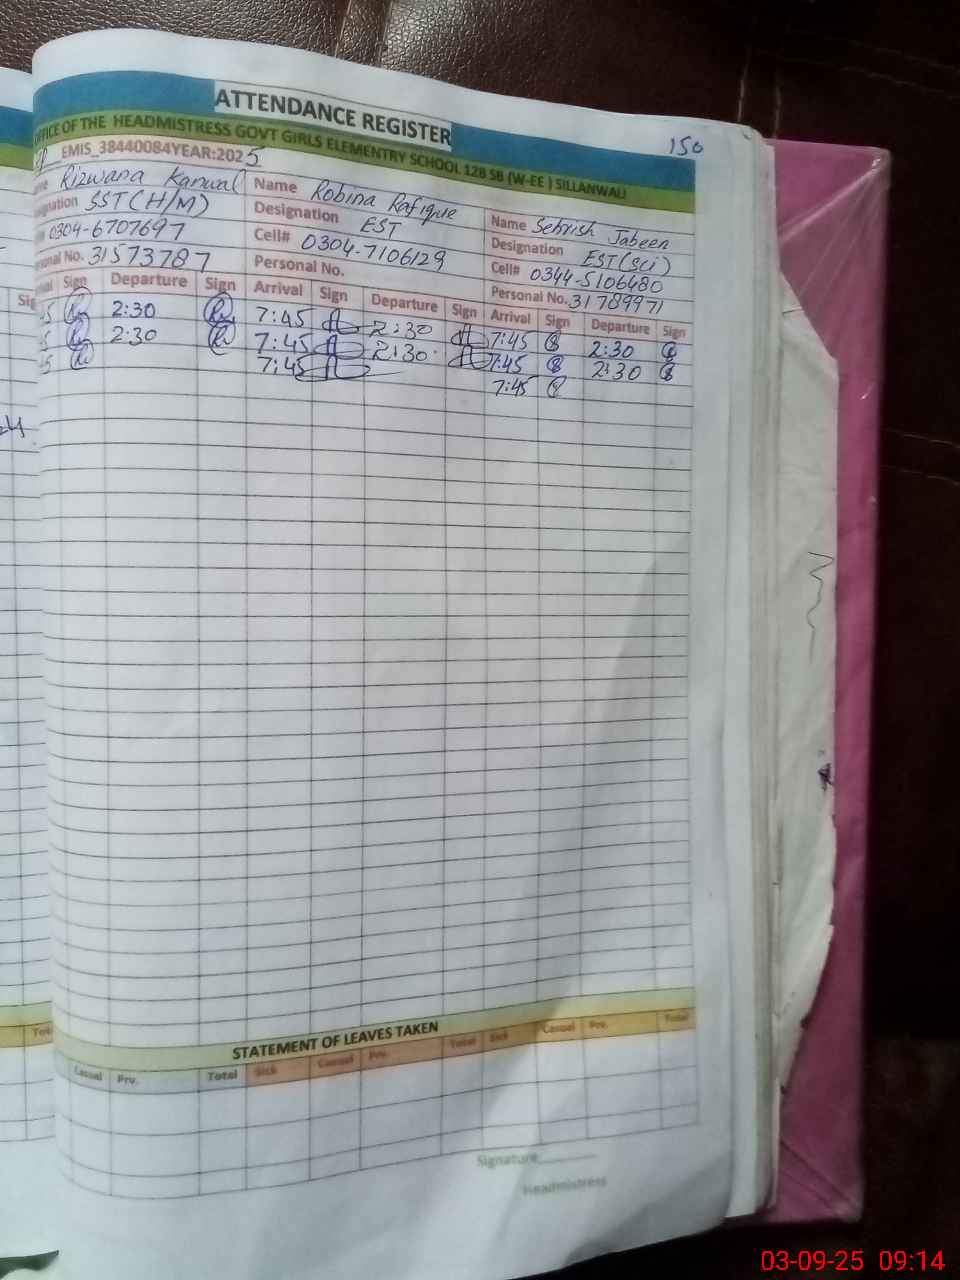 150
ATTENDANCE REGISTER
OFFICE OF THE HEADMISTRESS GOVT GIRLS ELEMENTRY SCHOOL 128 SB (W-EE ) SILLANWALI
EMIS_38440084YEAR:2025
Rizwana Kanwal Name Robina Rafique Name Sehrish Jabeen
SST (H/M) Designation EST Designation EST (Sci)
0304-6707697 Cell# 0304-7106129 Cell# 0344-5106480
Personal No. 31573787 Personal No. Personal No. 31789971
Sign Departure Sign Arrival Sign Departure Sign Arrival Sign Departure Sign
2:30 7:45 2:30 7:45 2:30
2:30 7:45 2:30 7:45 2:30
7:45 7:45
STATEMENT OF LEAVES TAKEN
Casual Prv. Total Sick Casual Prv. Total Sick Casual Prv. Total
Signature
Headmistress
03-09-25 09:14